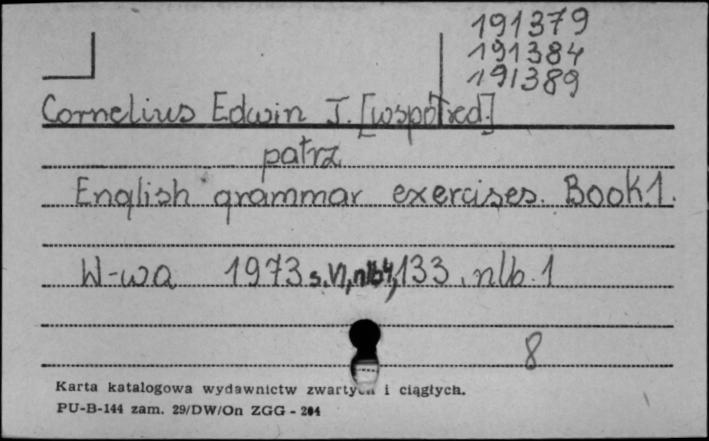 191379
191384
191389
Cornelius Edwin J. [współred.]
patrz
English grammar exercises. Book 1.
W-wa 1973 s. VI, nlb 4, 133, nlb. 1
8
Karta katalogowa wydawnictw zwartych i ciągłych.
PU-B-144 zam. 29/DW/On ZGG - 204